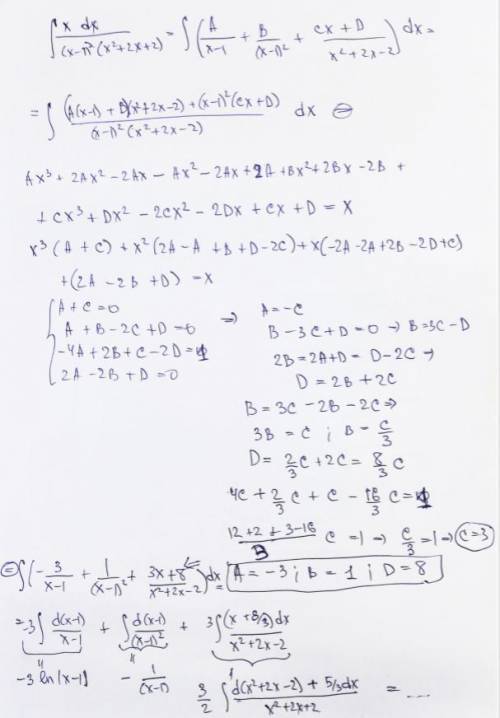 ∫ x dx / ((x-1)²(x²+2x+2)) = ∫ (A/(x-1) + B/(x-1)² + (Cx+D)/(x²+2x-2)) dx =
= ∫ ((A(x-1) + B)(x²+2x-2) + (x-1)²(Cx+D)) / ((x-1)²(x²+2x-2)) dx ⊖
Ax³ + 2Ax² - 2Ax - Ax² - 2Ax + 2A + Bx² + 2Bx - 2B +
+ Cx³ + Dx² - 2Cx² - 2Dx + Cx + D = x
x³(A + C) + x²(2A - A + B + D - 2C) + x(-2A - 2A + 2B - 2D + C)
+ (2A - 2B + D) = x
{ A + C = 0
A + B - 2C + D = 0
-4A + 2B + C - 2D = 1
2A - 2B + D = 0
⇒ A = -C
B - 3C + D = 0 → B = 3C - D
2B = 2A + D = D - 2C →
D = 2B + 2C
B = 3C - 2B - 2C ⇒
3B = C ; B = C/3
D = 2/3 C + 2C = 8/3 C
4C + 2/3 C + C - 16/3 C = 1
(12 + 2 + 3 - 16)/3 C = 1 → C/3 = 1 → C = 3
⊖ ∫ (-3/(x-1) + 1/(x-1)² + (3x+8)/(x²+2x-2)) dx = A = -3 ; B = 1 ; D = 8
= -3 ∫ d(x-1)/(x-1) + ∫ d(x-1)/(x-1)² + 3 ∫ (x + 8/3) dx / (x²+2x-2)
-3 ln|x-1| - 1/(x-1) 3/2 ∫ (d(x²+2x-2) + 5/3 dx) / (x²+2x+2) = ...